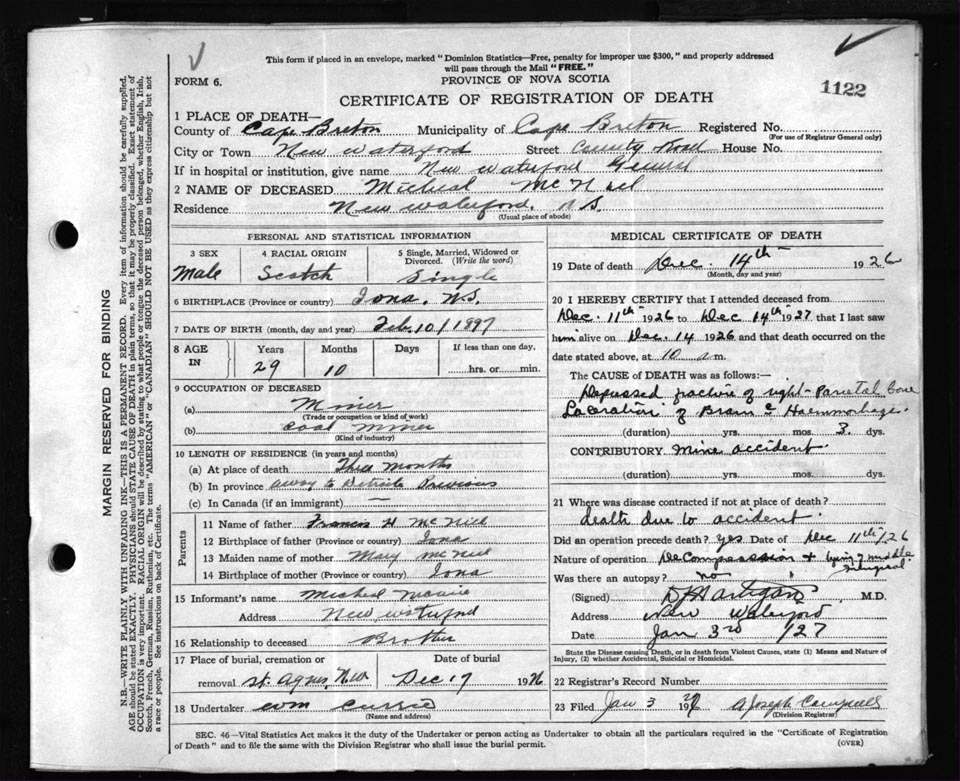 This form if placed in an envelope, marked "Dominion Statistics—Free, penalty for improper use $300," and properly addressed
will pass through the Mail "FREE."
FORM 6.
PROVINCE OF NOVA SCOTIA
1122
CERTIFICATE OF REGISTRATION OF DEATH
1 PLACE OF DEATH—
County of Cape Breton Municipality of Cape Breton Registered No.
(For use of Registrar General only)
City or Town New Waterford Street County Road House No.
If in hospital or institution, give name New Waterford General
2 NAME OF DECEASED Micheal McNeil
Residence New Waterford. N.S.
(Usual place of abode)
PERSONAL AND STATISTICAL INFORMATION
3 SEX
Male
4 RACIAL ORIGIN
Scotch
5 Single, Married, Widowed or
Divorced. (Write the word)
Single
6 BIRTHPLACE (Province or country) Iona. N.S.
7 DATE OF BIRTH (month, day and year) Feb. 10/1897
8 AGE
IN
Years
29
Months
10
Days
If less than one day,
hrs. or min.
9 OCCUPATION OF DECEASED
(a) Miner
(Trade or occupation or kind of work)
(b) Coal Miner
(Kind of industry)
10 LENGTH OF RESIDENCE (in years and months)
(a) At place of death Three months
(b) In province away to Detroit Previous
(c) In Canada (if an immigrant) —
Parents
11 Name of father Francis H McNeil
12 Birthplace of father (Province or country) Iona
13 Maiden name of mother Mary McNeil
14 Birthplace of mother (Province or country) Iona
15 Informant's name Micheal
Address New Waterford
16 Relationship to deceased Brother
17 Place of burial, cremation or
removal St. Agnes, New
Date of burial
Dec 17 1926
18 Undertaker Wm Currie
(Name and address)
MEDICAL CERTIFICATE OF DEATH
19 Date of death Dec. 14th 1926
(Month, day and year)
20 I HEREBY CERTIFY that I attended deceased from
Dec. 11th 1926 to Dec 14th 1927 that I last saw
him alive on Dec. 14 1926 and that death occurred on the
date stated above, at 10 a m.
The CAUSE of DEATH was as follows:—
Depressed fracture of right Parietal bone
Laceration of Brain c Haemmorhage.
(duration) yrs. mos. 3. dys.
CONTRIBUTORY Mine accident.
(duration) yrs. mos. dys.
21 Where was disease contracted if not at place of death?
death due to accident.
Did an operation precede death? Yes Date of Dec 11th/26
Nature of operation DeCompression + tying of middle
Meningeal
Was there an autopsy? no
(Signed) D Hartigan M.D.
Address New Waterford
Date Jan 3rd /27
State the Disease causing Death, or in death from Violent Causes, state (1) Means and Nature of
Injury, (2) whether Accidental, Suicidal or Homicidal.
22 Registrar's Record Number
23 Filed Jan 3 1927 A Joseph Campbell
(Division Registrar)
SEC. 46—Vital Statistics Act makes it the duty of the Undertaker or person acting as Undertaker to obtain all the particulars required in the "Certificate of Registration
of Death" and to file the same with the Division Registrar who shall issue the burial permit.
(OVER)
MARGIN RESERVED FOR BINDING
N.B.—WRITE PLAINLY WITH UNFADING INK—THIS IS A PERMANENT RECORD. Every item of information should be carefully supplied.
AGE should be stated EXACTLY. PHYSICIANS should STATE CAUSE OF DEATH in plain terms, so that it may be properly classified. Exact statement of
OCCUPATION is very important. RACIAL ORIGIN will be described by stating to what people or tongue the deceased person belonged, whether English, Irish,
Scotch, French, German, Russian, Ruthenian, etc. The terms "AMERICAN" or "CANADIAN" SHOULD NOT BE USED as they express citizenship but not
a race or people. See instructions on back of Certificate.